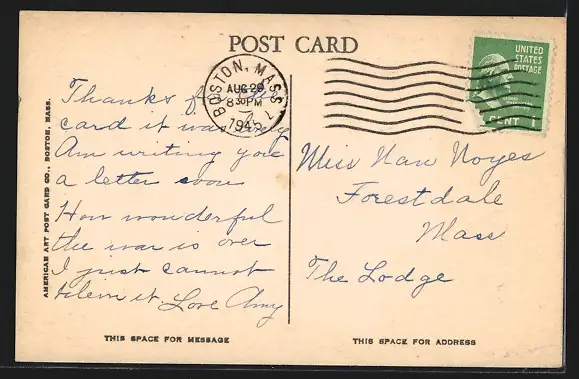 POST CARD
BOSTON, MASS.
AUG 29
8 30 PM
1945
UNITED
STATES
POSTAGE
CENT 1
Thanks for the
card it was lovely
Am writing you
a letter soon
How wonderful
the war is over
I just cannot
it. Love Amy
Miss Nan Noyes
Forestdale
Mass
The Lodge
AMERICAN ART POST CARD CO., BOSTON, MASS.
THIS SPACE FOR MESSAGE
THIS SPACE FOR ADDRESS